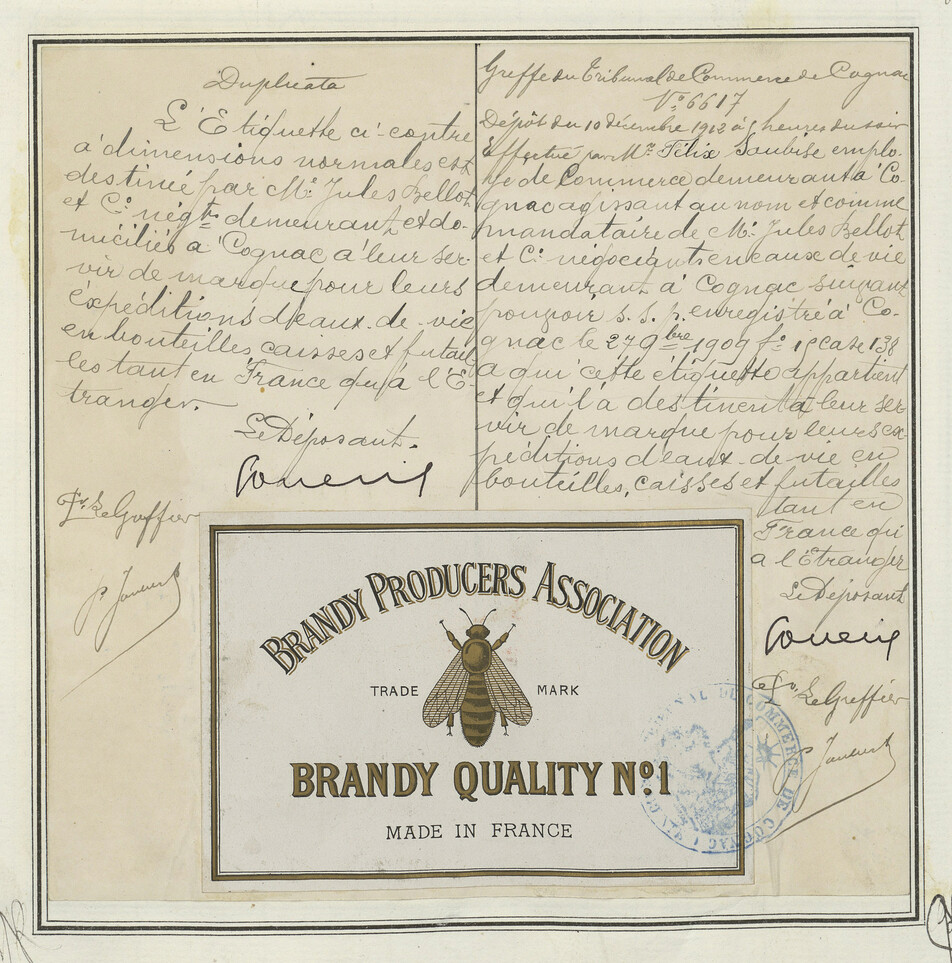 Duplicata
L'Etiquette ci-contre
à dimensions normales est
destinée par Mr. Jules Bellot
et Cie négts. demeurant et do-
miciliés à Cognac à leur ser-
vir de marque pour leurs
expéditions d'eaux-de-vie
en bouteilles, caisses et futail
les tant en France qu'à l'É-
tranger.
Le Déposant.
Pr. Le Greffier
Greffe du Tribunal de Commerce de Cognac
No. 6617
Dépôt du 10 décembre 1912 à heures du soir
Effectué par Mr. Félix Saubise emplo-
yé de Commerce demeurant à Co-
gnac agissant au nom et comme
mandataire de Mr. Jules Bellot
et Cie négociants en eaux de vie
demeurant à Cognac suivant
pouvoir s. s. p. enregistré à Co-
gnac le 27 9bre 1909 fo case 138
à qui cette étiquette appartient
et qui l'a destinent à leur ser-
vir de marque pour leurs ex-
péditions d'eaux-de-vie en
bouteilles, caisses et futailles
tant en
France qu'
à l'Étranger
Le Déposant
Pr. Le Greffier
BRANDY PRODUCERS ASSOCIATION
TRADE MARK
BRANDY QUALITY No. 1
MADE IN FRANCE
TRIBUNAL DE COMMERCE DE COGNAC